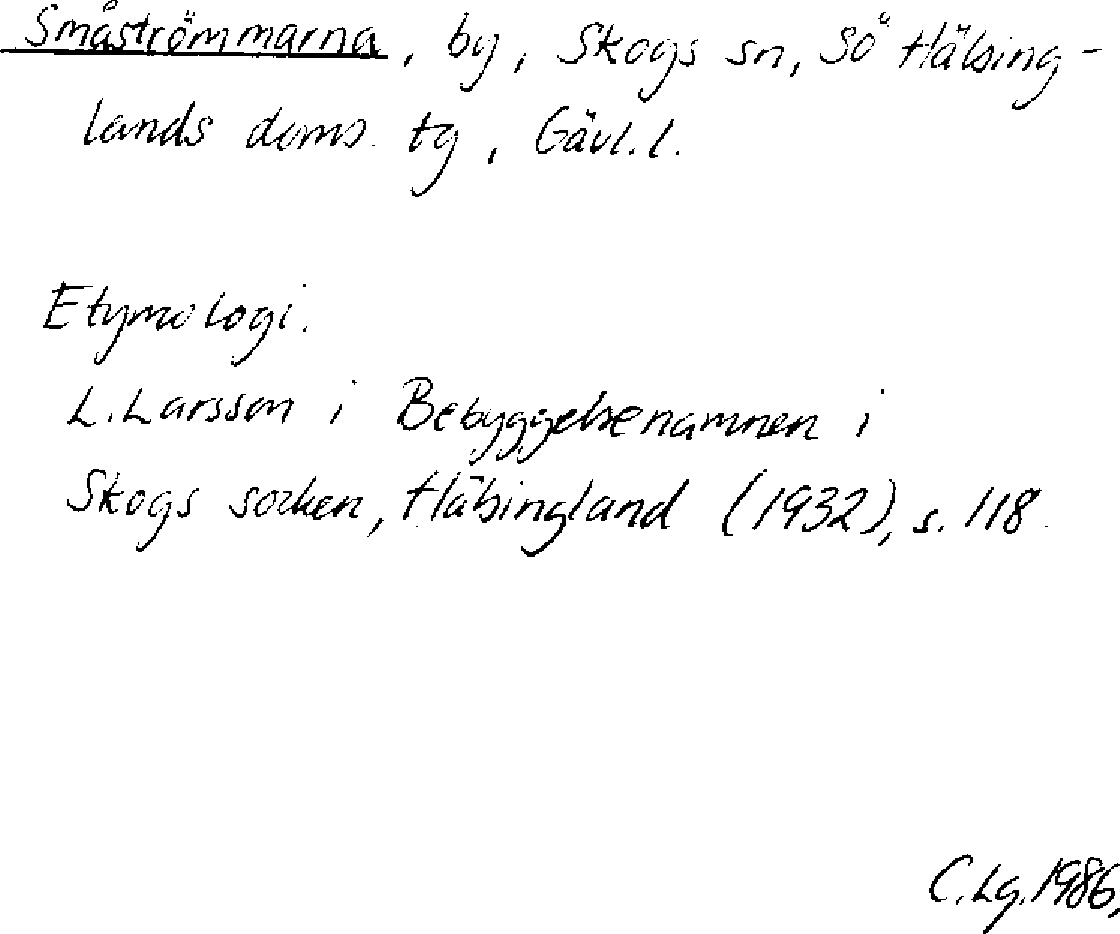 Småströmmarna, by, Skogs sn, Sö Hälsing-
lands doms. tg, Gävl. l.
Etymologi.
L. Larsson i Bebyggelsenamnen i
Skogs socken, Hälsingland (1932), s. 118.
C. Lg. 1986,